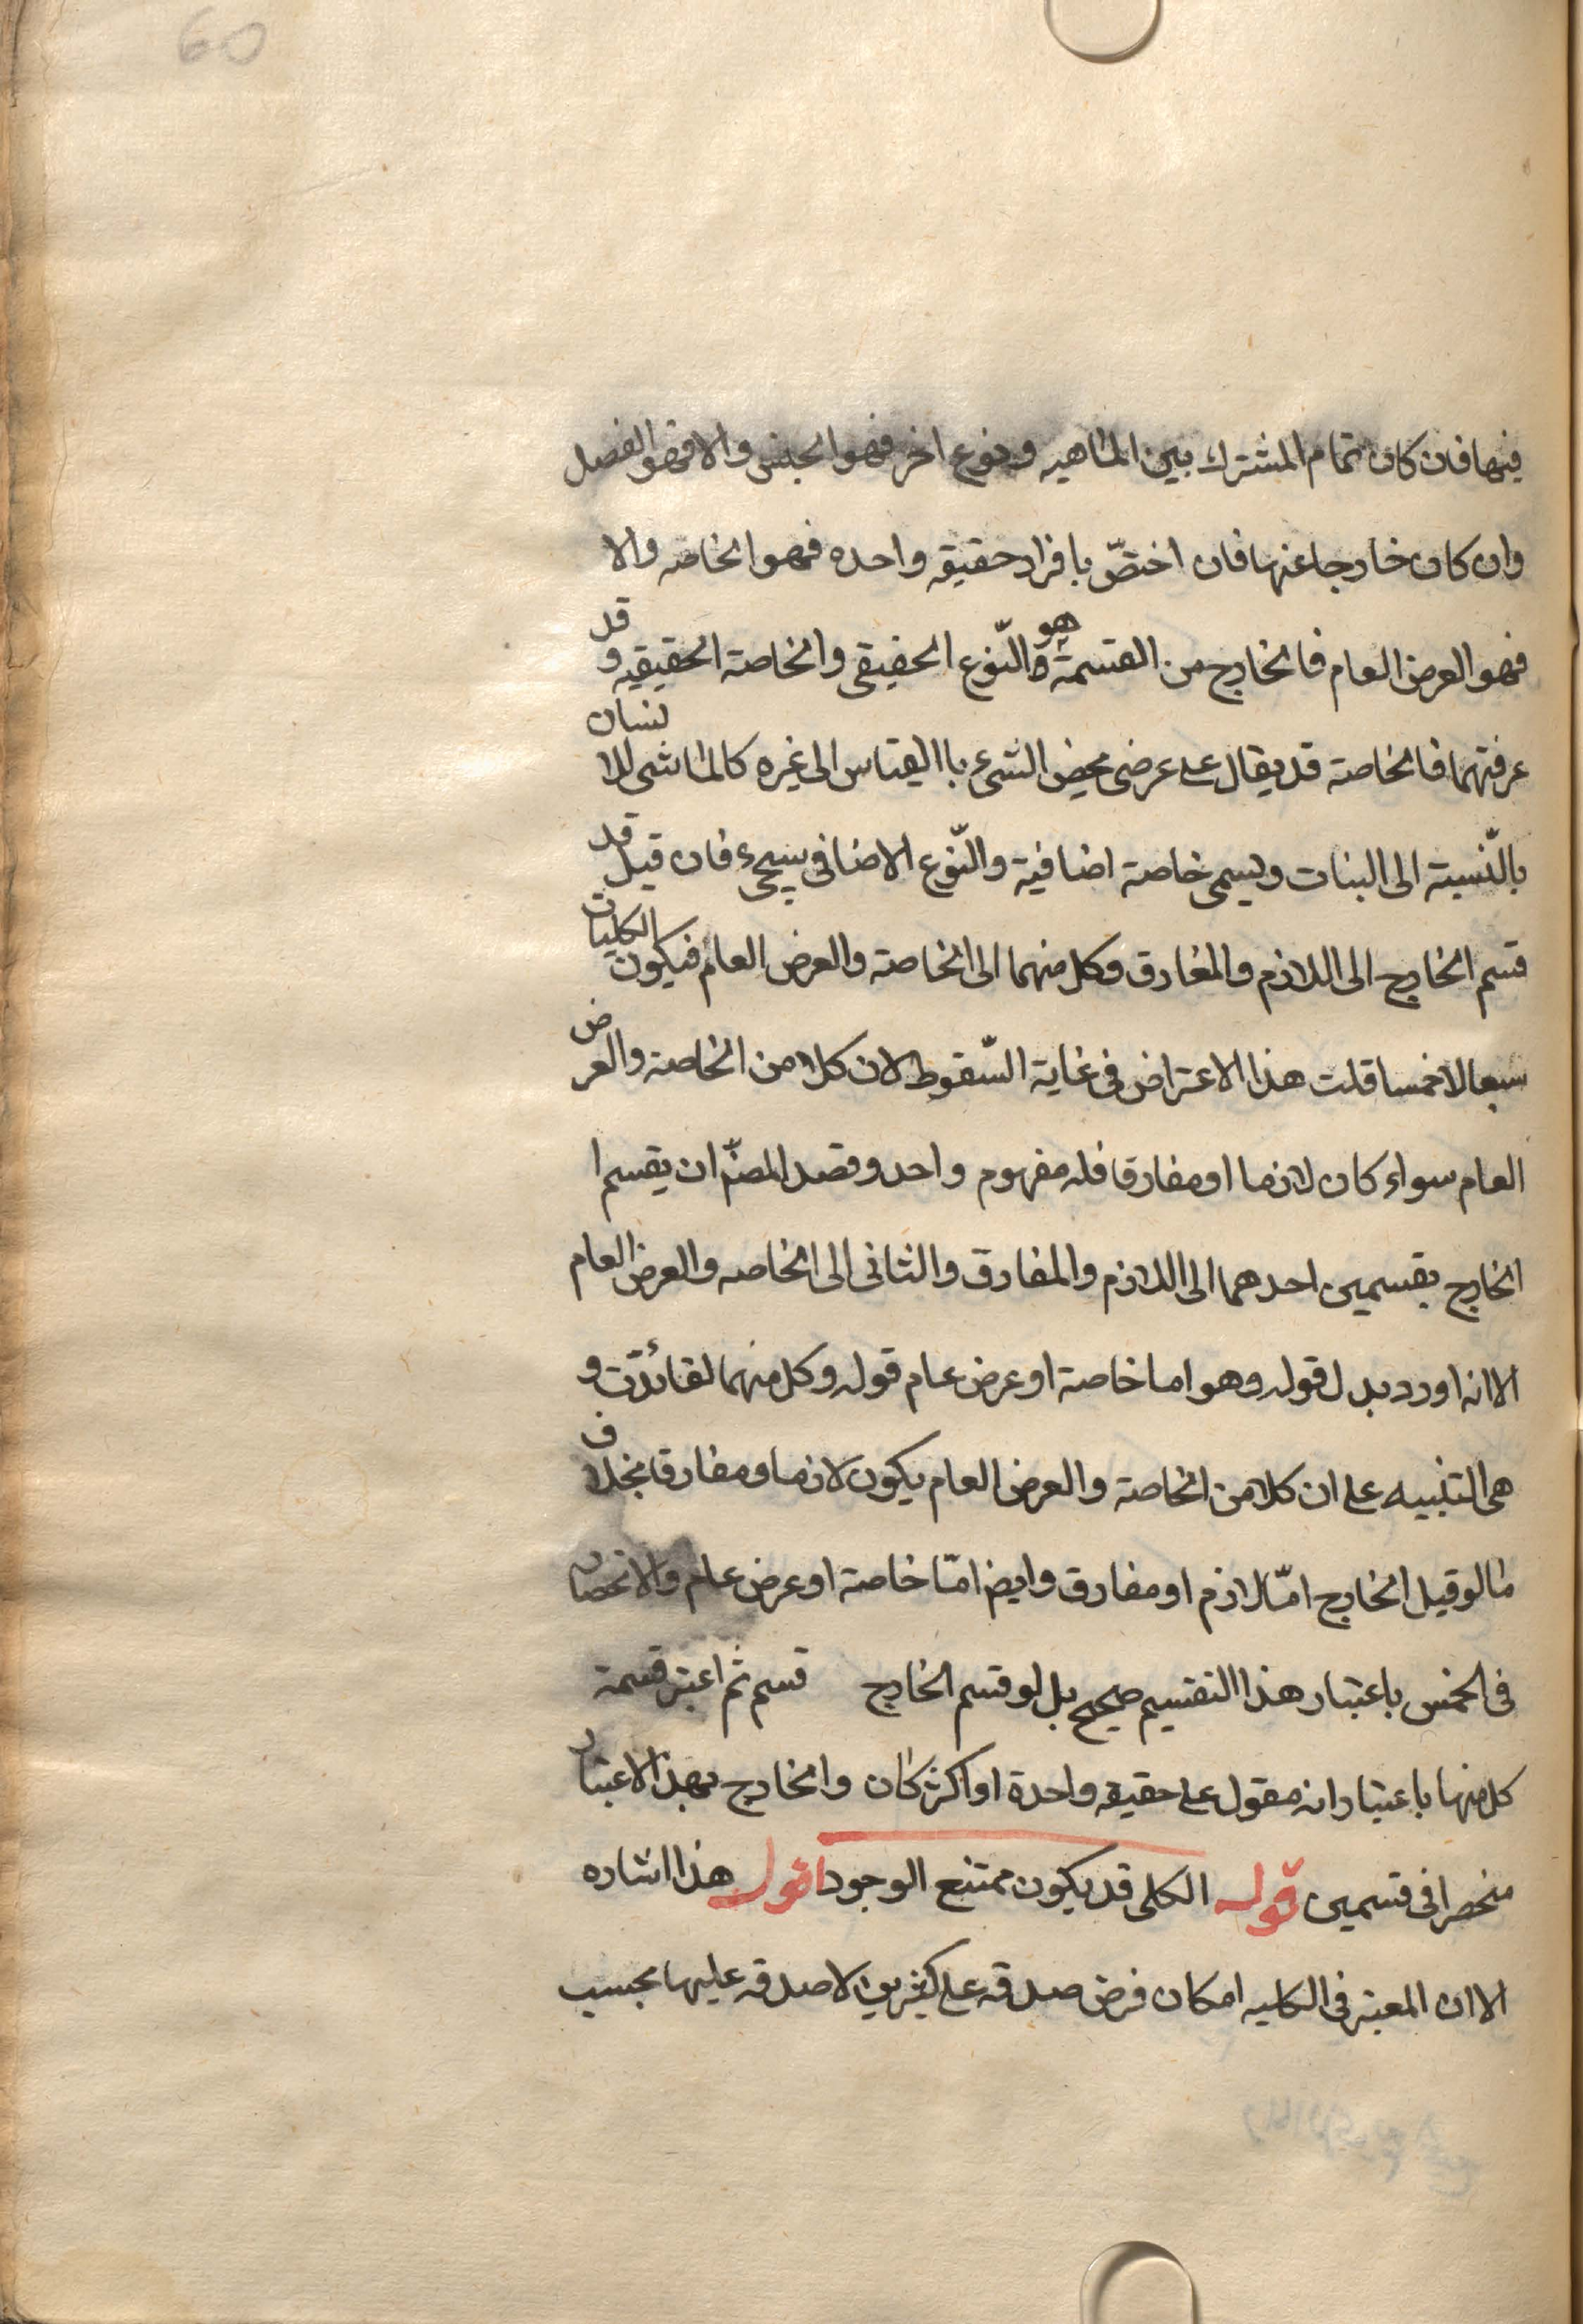 60
فيها فان كان تمام المشترك بين الماهيه و نوع اخر فهو الجنس والا فهو الفصل
وان كان خارجا عنها فان اختصّ بافراد حقيقه واحده فهو الخاصه والا
فهو العرض العام فالخارج من القسمة هو النّوع الحقيقى والخاصة الحقيقيه و قد
عرفتهما فالخاصة قد يقال على عرضى محض الشىء باالقياس الى غيره كالماشى للانسان
بالنّسبة الى النبات ويسمى خاصة اضافية والنّوع الاضافى سيجىء فان قيل قد
قسم الخارج الى اللازم والمفارق وكل منهما الى الخاصة والعرض العام فيكون الكليات
سبعا لا خمسا قلت هذا الاعتراض فى غاية السّقوط لان كلا من الخاصة والعرض
العام سواء كان لازما او مفارقا فله مفهوم واحد وقصد المصنّ ان يقسم ا
الخارج بقسمين احدهما الى اللازم والمفارق والثانى الى الخاصه والعرض العام
الا انه اورد بدل قوله وهو اما خاصة او عرض عام قوله وكل منهما لفائدة و
هى التنبيه على ان كلا من الخاصة والعرض العام يكون لازما ومفارقا بخلاف
ما لو قيل الخارج امّا لازم او مفارق وايض امّا خاصة او عرض عام والانحصار
فى الخمس باعتبار هذا التقسيم صحيح بل لو قسم الخارج قسم ثم اعتبر قسمة
كل منها باعتبار انه مقول على حقيقه واحدة او اكثر كان والخارج بهذا الاعتبار
منحصرا فى قسمين قوله الكلى قد يكون ممتنع الوجود اقول هذا اشاره
الا ان المعتبر فى الكليه امكان فرض صدقه على كثيرين لا صدقه عليها بحسب